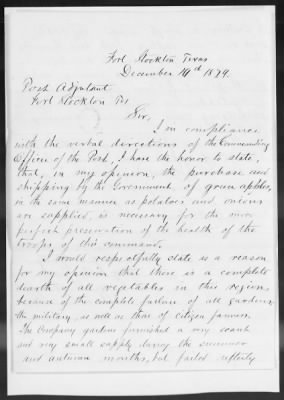 Fort Stockton Texas
December 19th 1879.
Post Adjutant
Fort Stockton Tex
Sir,
In compliance
with the verbal directions of the Commanding
Officer of the Post, I have the honor to state,
that, in my opinion, the purchase and
shipping by the Government of green apples,
in the same manner as potatoes and onions
are supplied, is necessary for the more
perfect preservation of the health of the
troops of this command.
I would respectfully state as a reason
for my opinion that there is a complete
dearth of all vegetables in this region,
because of the complete failure of all gardens,
the military, as well as that of citizen farmers.
The Company gardens furnished a very scant
and very small supply during the summer
and autumn months, but failed utterly